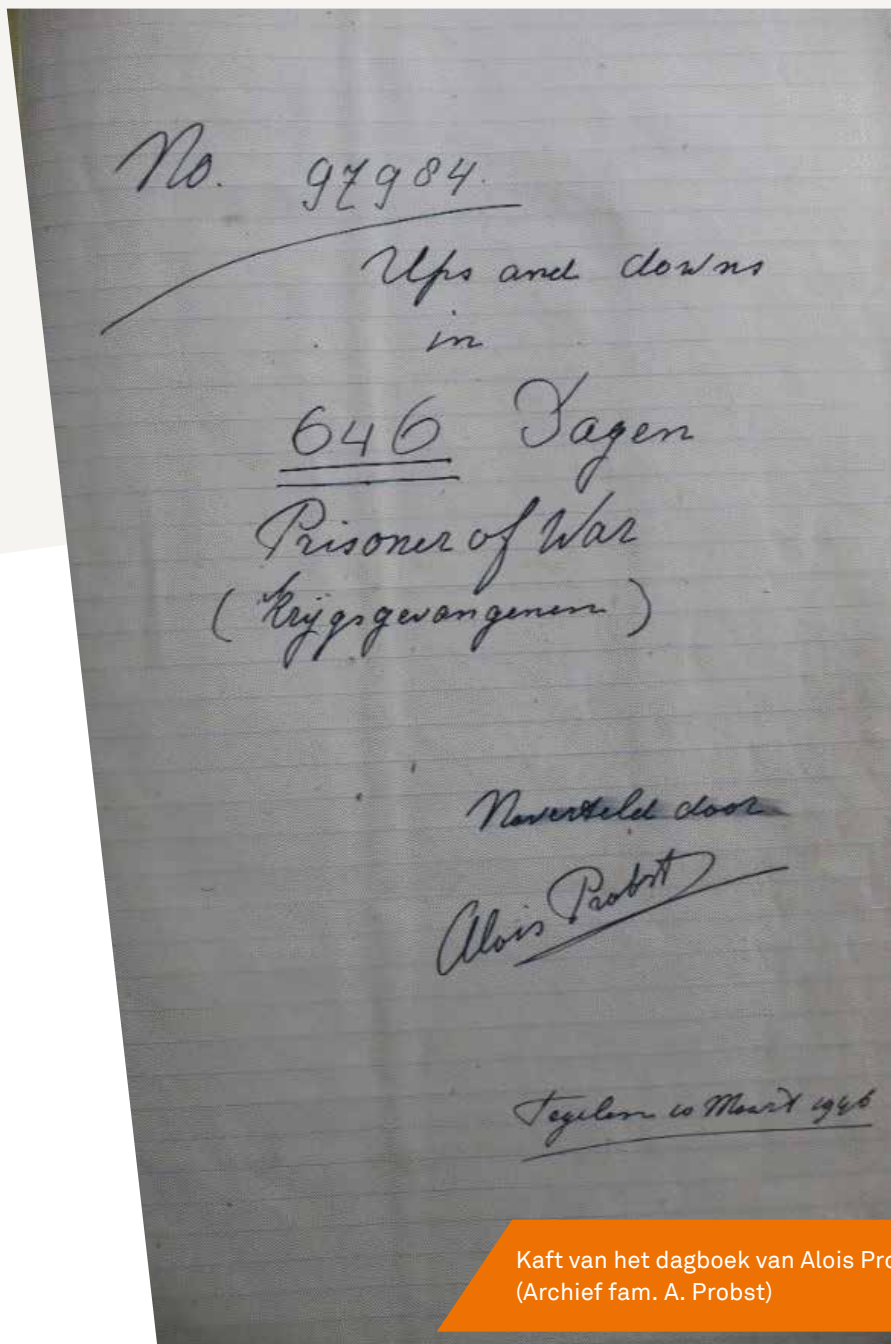 No. 97984.
Ups and downs
in
646 Dagen
Prisoner of War
(Krijgsgevangenen)
Naverteld door
Alois Probst
Tegelen 10 Maart 1946
Kaft van het dagboek van Alois Pro
(Archief fam. A. Probst)